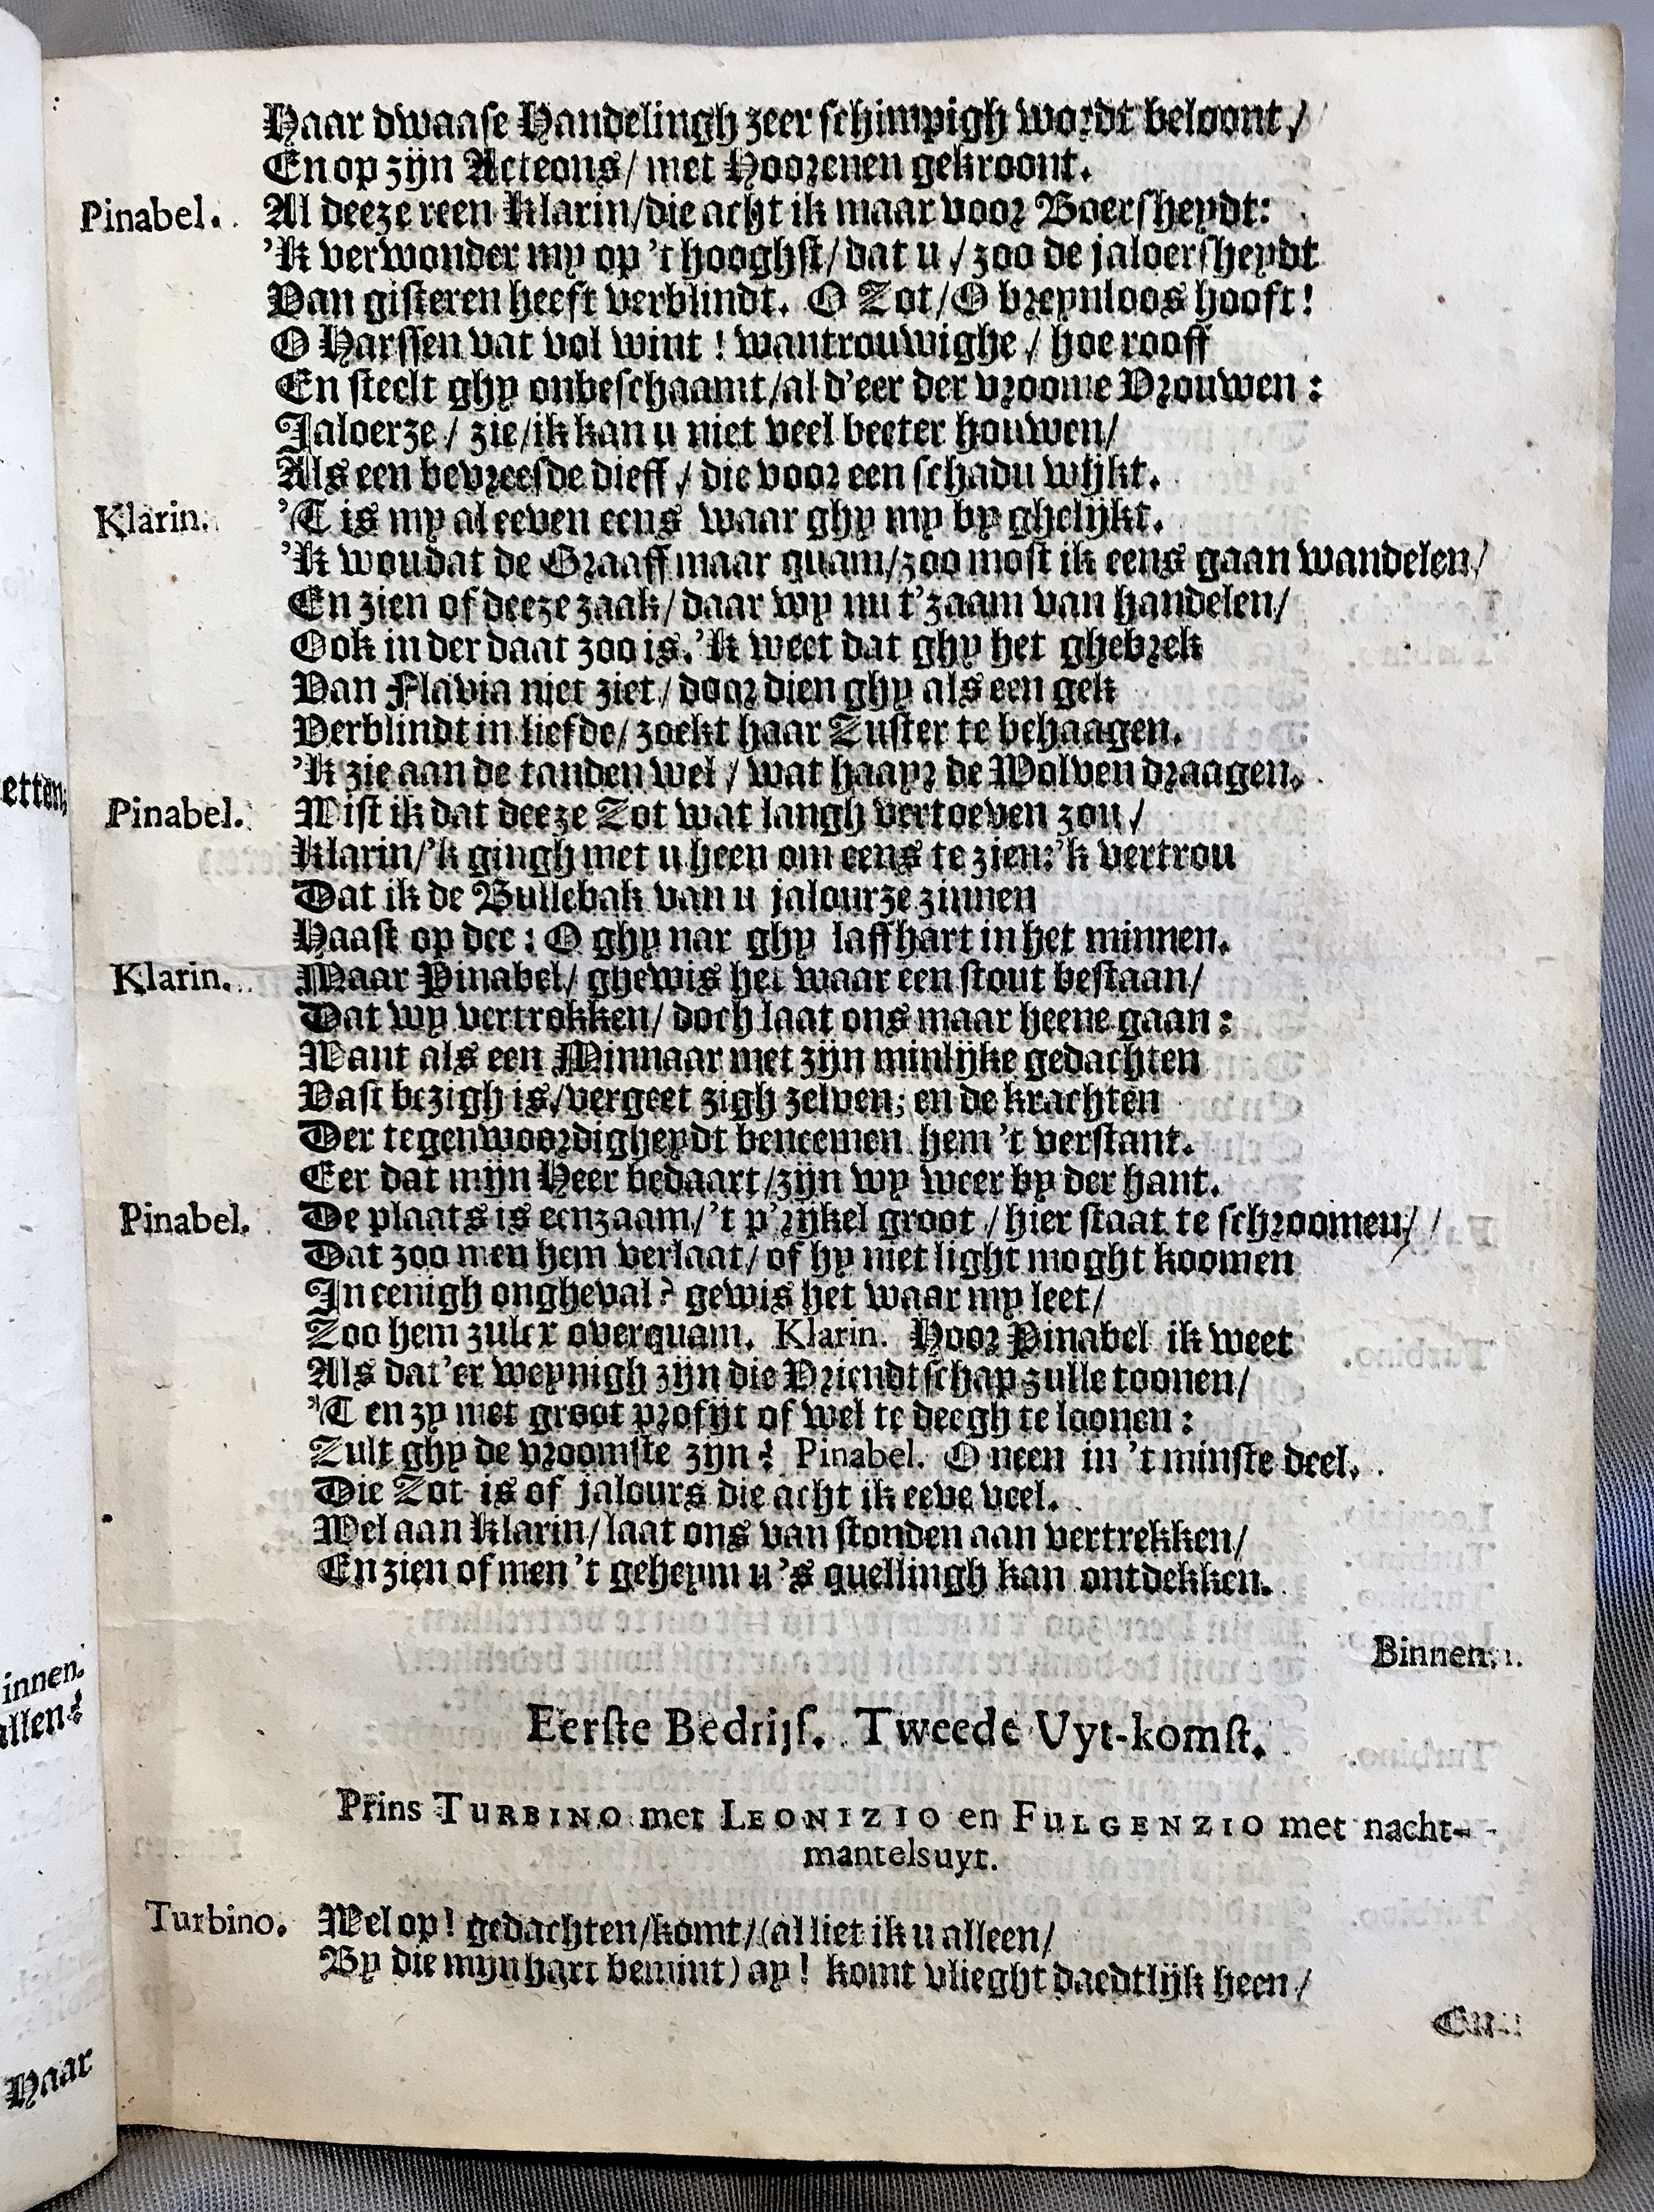 Haar dwaase Handelingh zeer schimpigh wordt beloont/
En op zijn Acteons/ met Hoorenen gekroont.
Pinabel. Al deeze reen Klarin/die acht ik maar voor Boersheydt:
'K verwonder my op 't hooghst/dat u/zoo de jaloersheydt
Van gisteren heeft verblindt. O Zot/O breynloos hooft!
O Harssen vat vol wint! wantrouwighe/ hoe rooff
En steelt ghy onbeschaamt/al d'eer der vroome Vrouwen:
Jaloerze/ zie/ik kan u niet veel beeter houwen/
Als een bevreesde dieff/ die voor een schadu wijkt.
Klarin. 'T is my al eeven eens waar ghy my by ghelijkt.
'K wou dat de Graaff maar quam/zoo most ik eens gaan wandelen/
En zien of deeze zaak/daar wy nu t'zaam van handelen/
Ook in der daat zoo is. 'K weet dat ghy het ghebrek
Van Flavia niet ziet/ door dien ghy als een gek
Verblindt in liefde/zoekt haar Zuster te behaagen.
'K zie aan de tanden wel/ wat haayr de Wolven draagen.
Pinabel. Wist ik dat deeze Zot wat langh vertoeven zou/
Klarin/'k gingh met u heen om eens te zien:'k vertrou
Dat ik de Bullebak van u jalourze zinnen
Haast op dee: O ghy nar ghy laffhart in het minnen.
Klarin. Maar Pinabel/ ghewis het waar een stout bestaan/
Dat wy vertrokken/ doch laat ons maar heene gaan:
Want als een Minnaar met zijn minlijke gedachten
Vast bezigh is/vergeet zigh zelven; en de krachten
Der tegenwoordigheydt beneemen hem 't verstant.
Eer dat mijn Heer bedaart/zijn wy weer by der hant.
Pinabel. De plaats is eenzaam/'t p'rijkel groot/hier staat te schroomen/
Dat zoo men hem verlaat/of hy niet light moght koomen
In eenigh ongheval? gewis het waar my leet/
Zoo hem zulex overquam. Klarin. Hoor Pinabel ik weet
Als dat'er weynigh zijn die Vriendtschap zulle toonen/
'T en zy met groot profijt of wel te deegh te loonen:
Zult ghy de vroomste zijn? Pinabel. O neen in 't minste deel.
Die Zot is of jalours die acht ik eeve veel.
Wel aan Klarin/laat ons van stonden aan vertrekken/
En zien of men 't geheym u's quellingh kan ontdekken.
Binnen.
Eerste Bedrijf. Tweede Uyt-komst.
Prins TURBINO met LEONIZIO en FULGENZIO met nacht-
mantelsuyt.
Turbino. Wel op! gedachten/komt/(al liet ik u alleen/
By die mijn hart bemint) ay! komt vlieght daedtlijk heen/
En
etten;
innen.
allen?
Haar